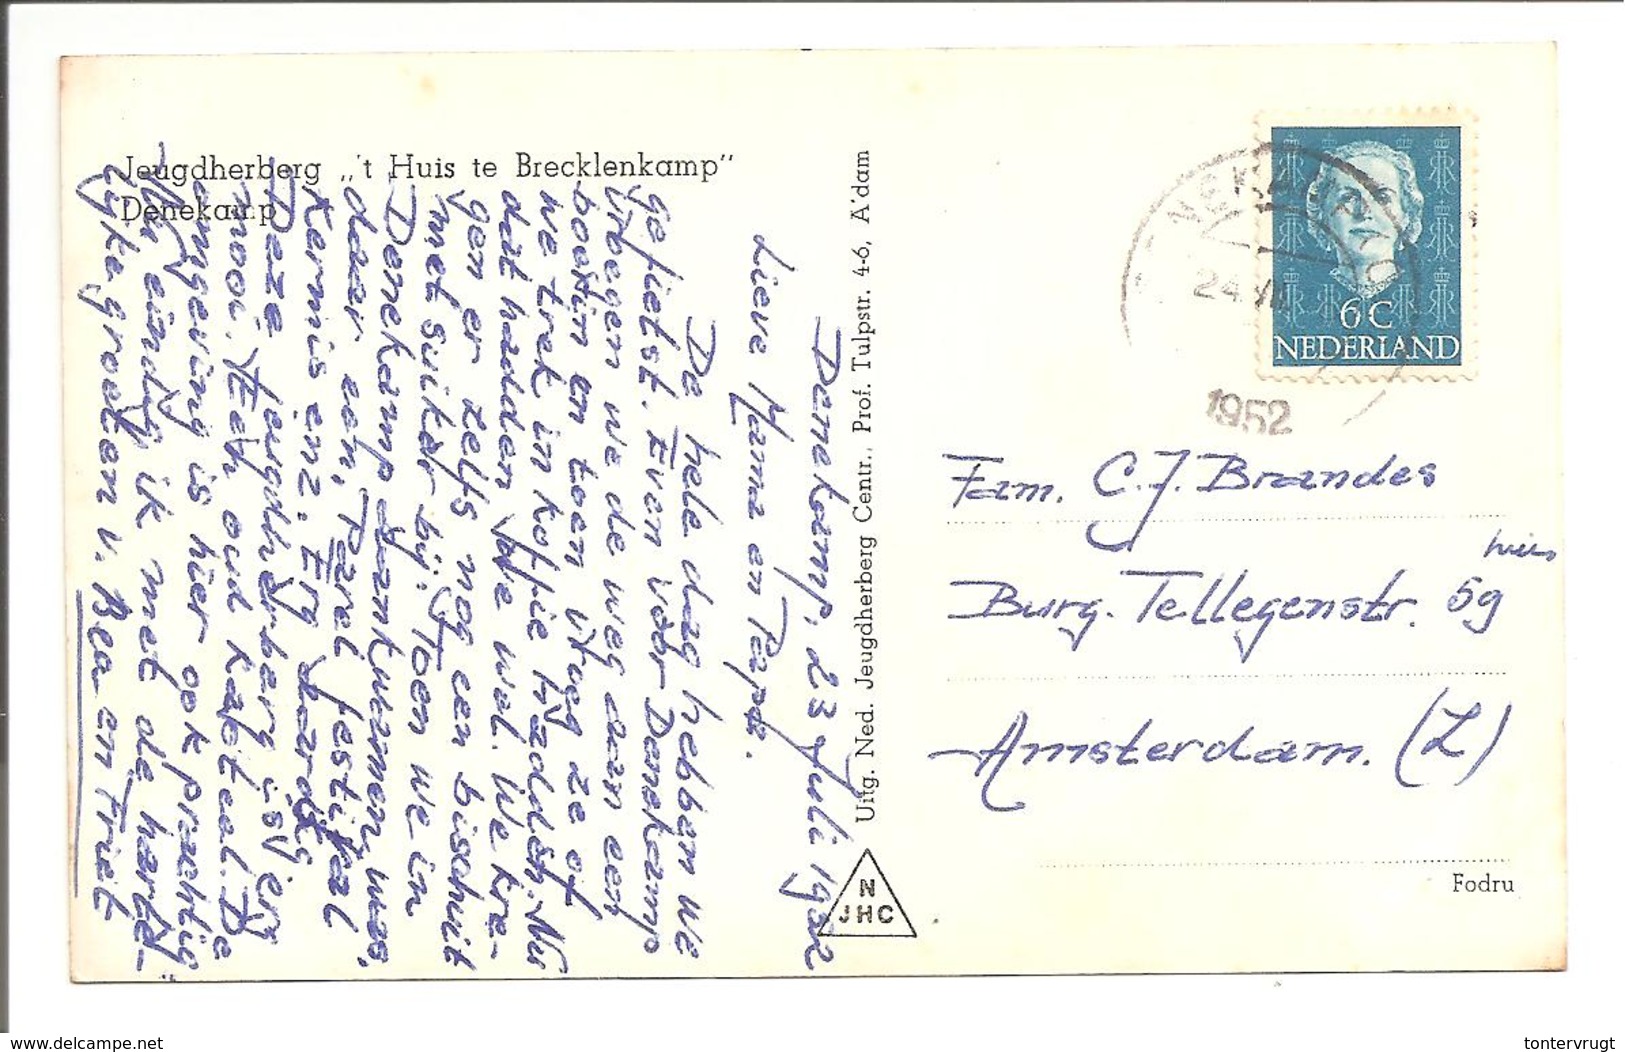 Jeugdherberg „'t Huis te Brecklenkamp"
Denekamp
Denekamp, 23 Juli 1952
Lieve Mama en Papa.
De hele dag hebben we
gefietst. Even voor Denekamp
vroegen we de weg aan een
boerin en toen vroeg ze of
we trek in koffie hadden. Nu
dat hadden we wel. We kre-
gen er zelfs nog een bischuit
met suiker bij. Toen we in
Denekamp aankwamen, was
daar een, Parel festival
Kermis enz. Erg aardig
Deze jeugdherberg is erg
mooi. Een oud kasteel. De
omgeving is hier ook prachtig
Nu eindig ik met de harte-
lijke groeten v. Bea en Friet
Uitg. Ned. Jeugdherberg Centr., Prof. Tulpstr. 4-6, A'dam
N
JHC
24 VII
1952
6 C
NEDERLAND
Fam. C.J. Brandes
Burg. Tellegenstr. 59 huis
Amsterdam. (Z)
Fodru
delcampe.net
tontervrugt